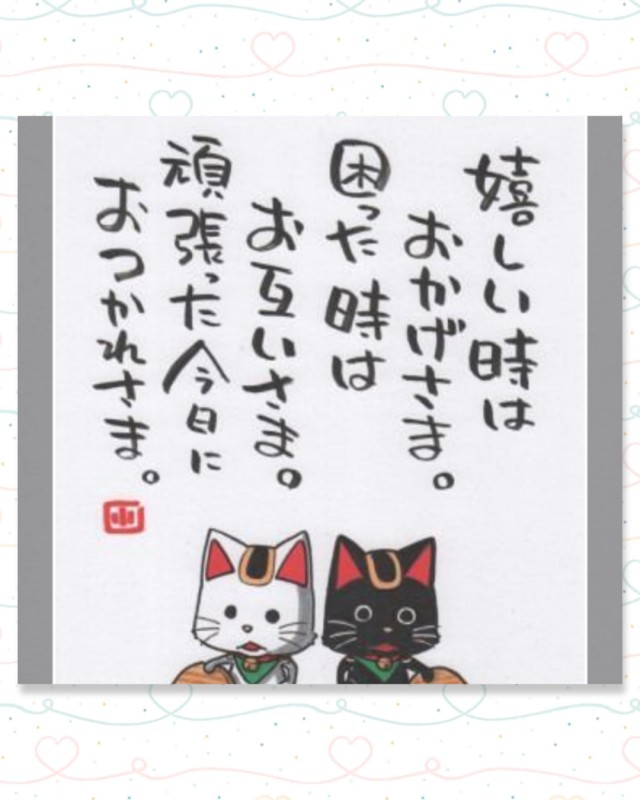 嬉しい時は
おかげさま。
困った時は
お互いさま。
頑張った今日に
おつかれさま。